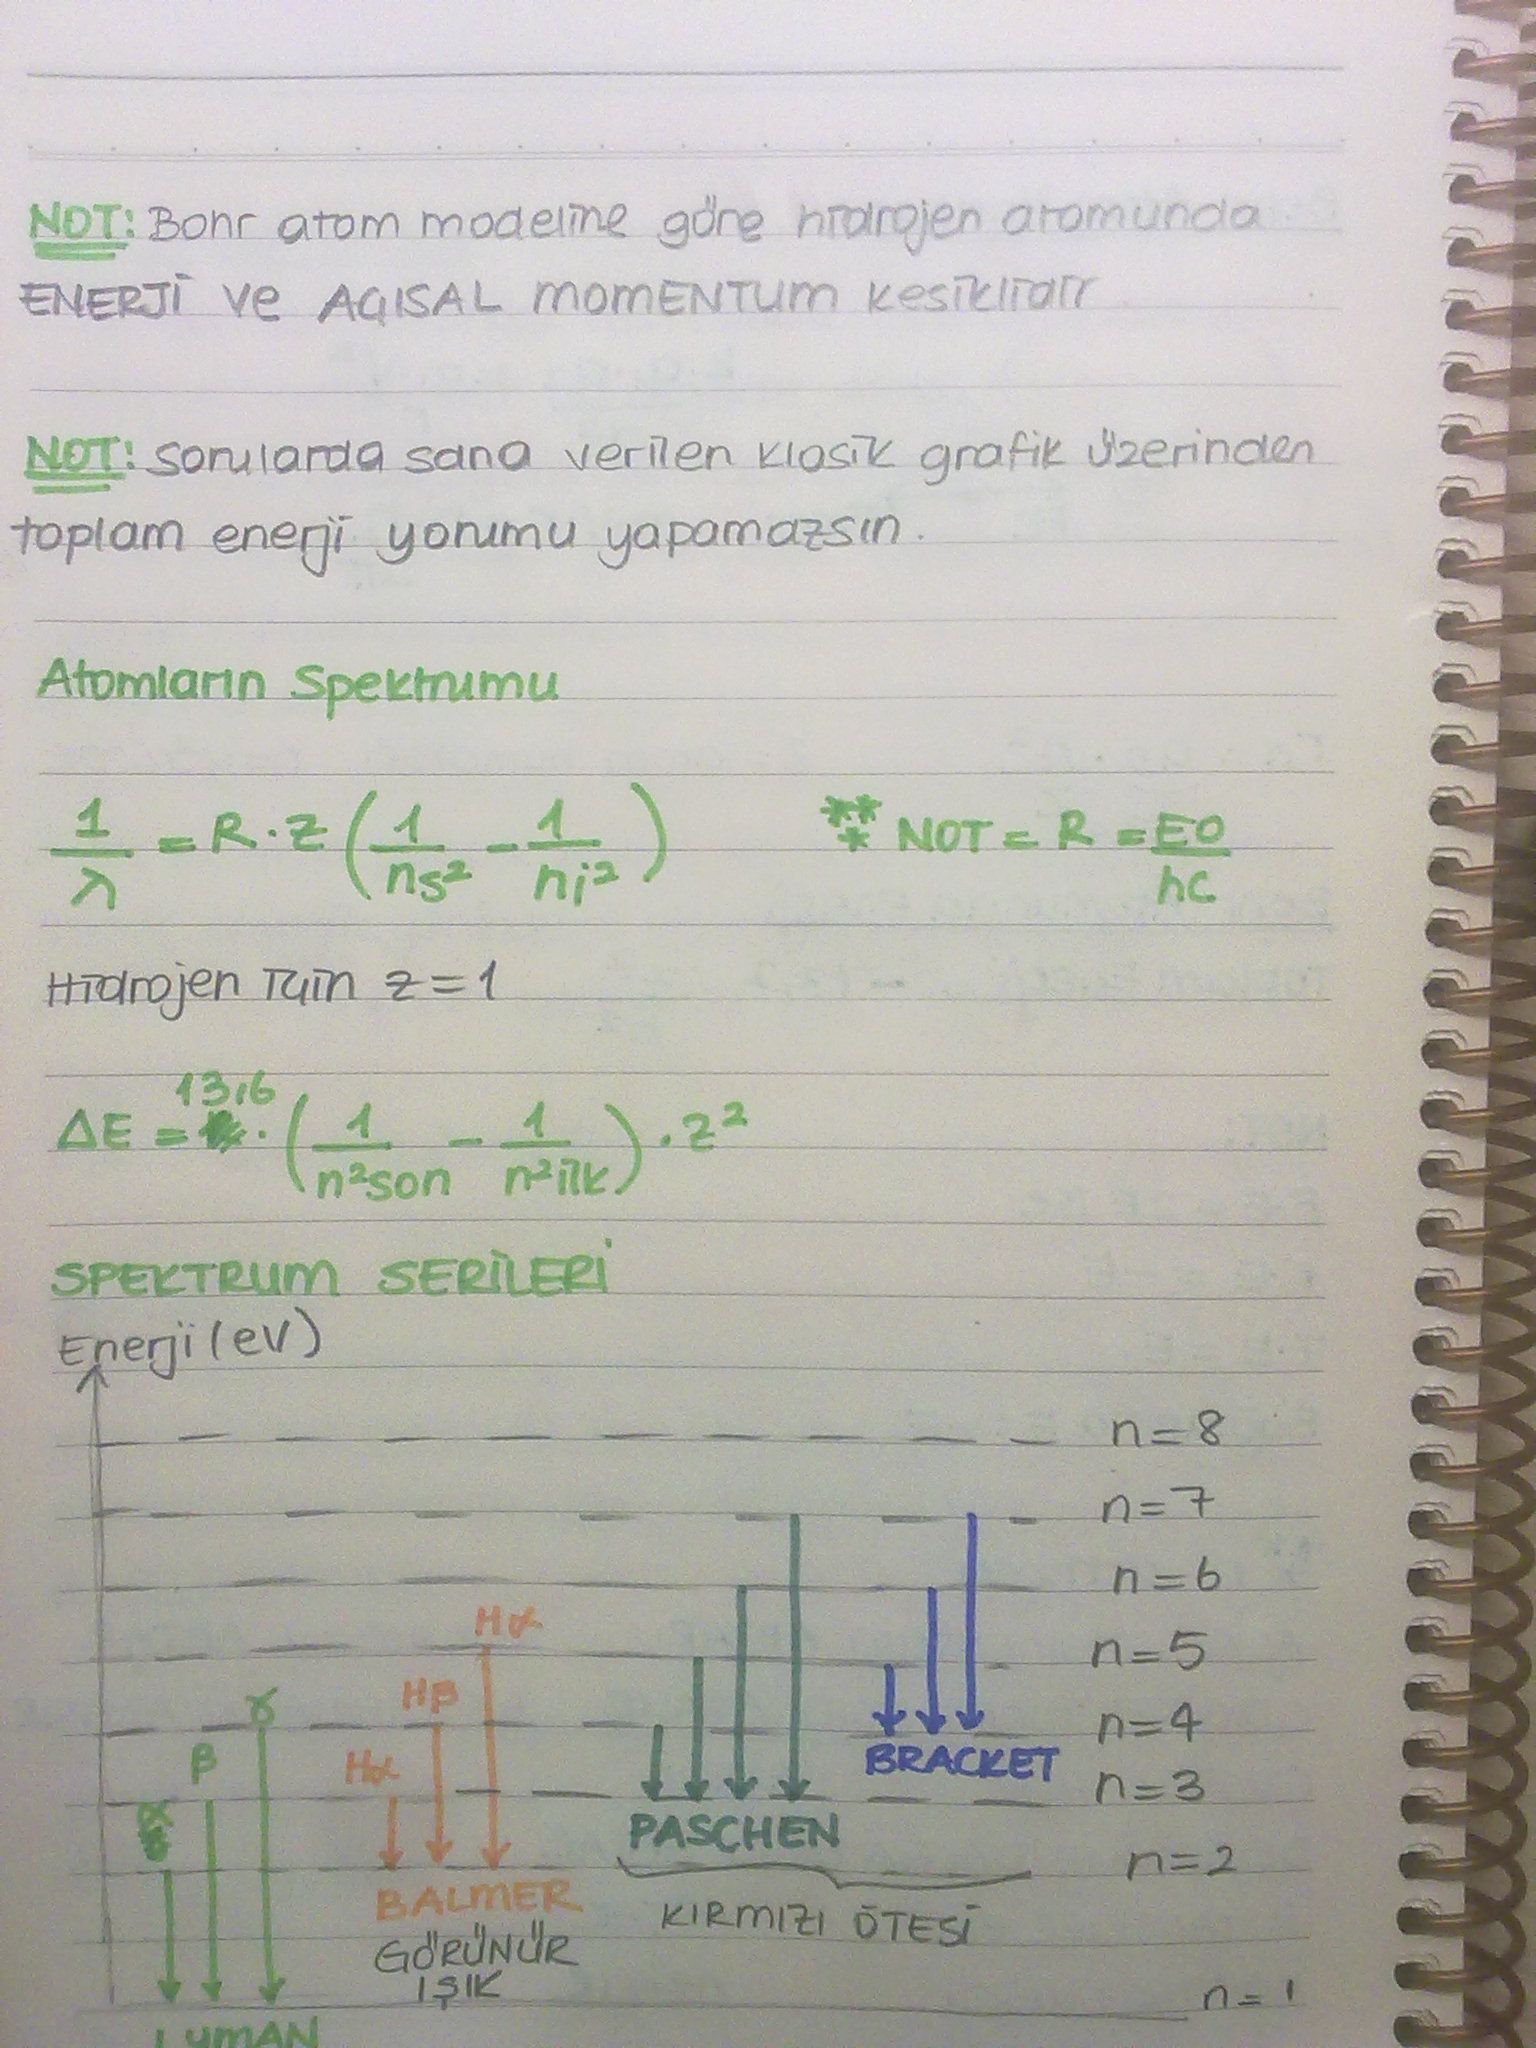 NOT: Bohr atom modeline göre hidrojen atomunda
ENERJİ ve AÇISAL MOMENTUM kesiklidir
NOT: Sorularda sana verilen klasik grafik üzerinden
toplam enerji yorumu yapamazsın.
Atomların Spektrumu
1/λ = R·z (1/ns² - 1/ni²)
*** NOT = R = E0/hc
Hidrojen için z=1
ΔE = 13,6 · (1/n²son - 1/n²ilk) · z²
SPEKTRUM SERİLERİ
Enerji (eV)
n=8
n=7
n=6
Hα
n=5
γ
Hβ
n=4
β
Hα
BRACKET
n=3
α
PASCHEN
n=2
BALMER
KIRMIZI ÖTESİ
GÖRÜNÜR
IŞIK
n=1
LYMAN